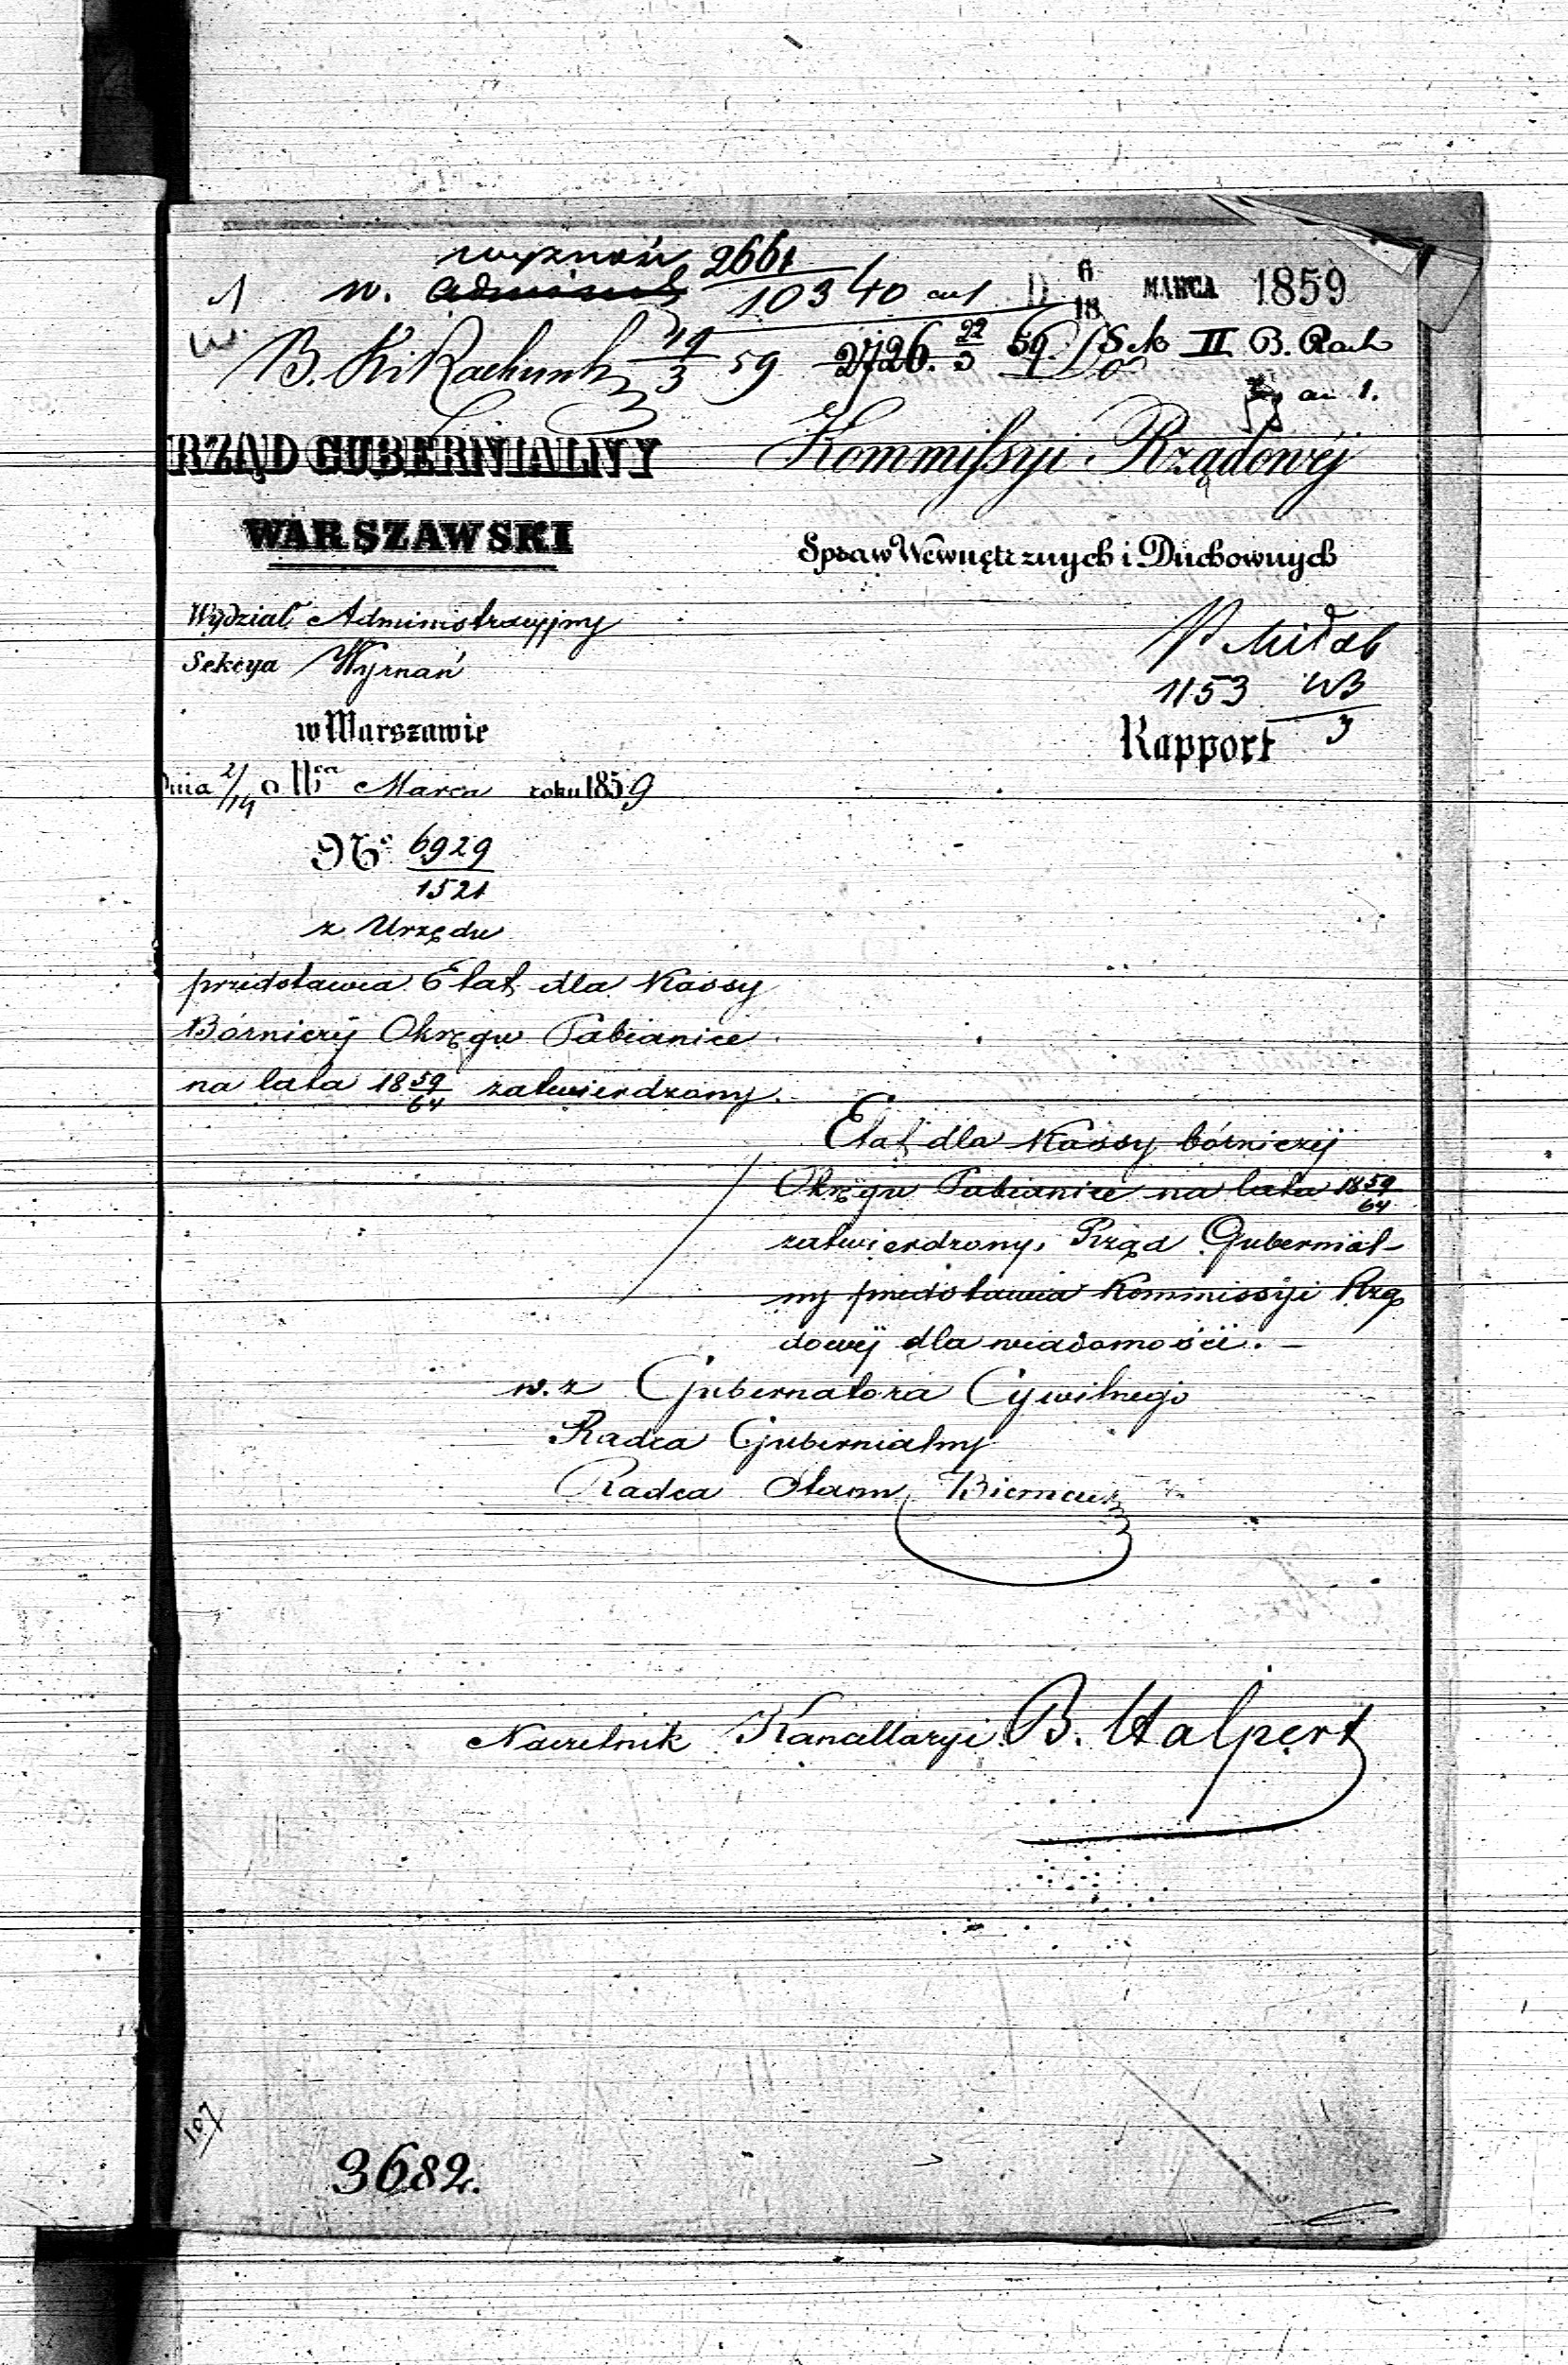 wyznań 2661
w. Administ 10340 au 1 D 6/18 MARCA 1859
B. Ki Rachunk 19/3 59 2726. 22/3 59. Sek II B. Rach
au 1.
Do
RZĄD GUBERNIALNY
WARSZAWSKI
Kommissyi Rządowéj
Spraw Wewnętrznych i Duchownych
Wydział Administracyjny
Sekcya Wyznań
w Warszawie
Dnia 2/14 Marca roku 1859
1153
3
Rapport
No 6929
1521
z Urzędu
przedstawia Etat dla Kassy
Bóżniczéj Okręgu Pabianice
na lata 1859/64 zatwierdzony.
Etat dla Kassy bóżniczéj
Okręgu Pabianice na lata 1859/64
zatwierdzony, Rząd Gubernial-
ny przedstawia Kommissyi Rzą
dowéj dla wiadomości. –
w. z Gubernatora Cywilnego
Radca Gubernialny
Radca Stanu
Naczelnik Kancellaryi B. Halpert
107
3682.